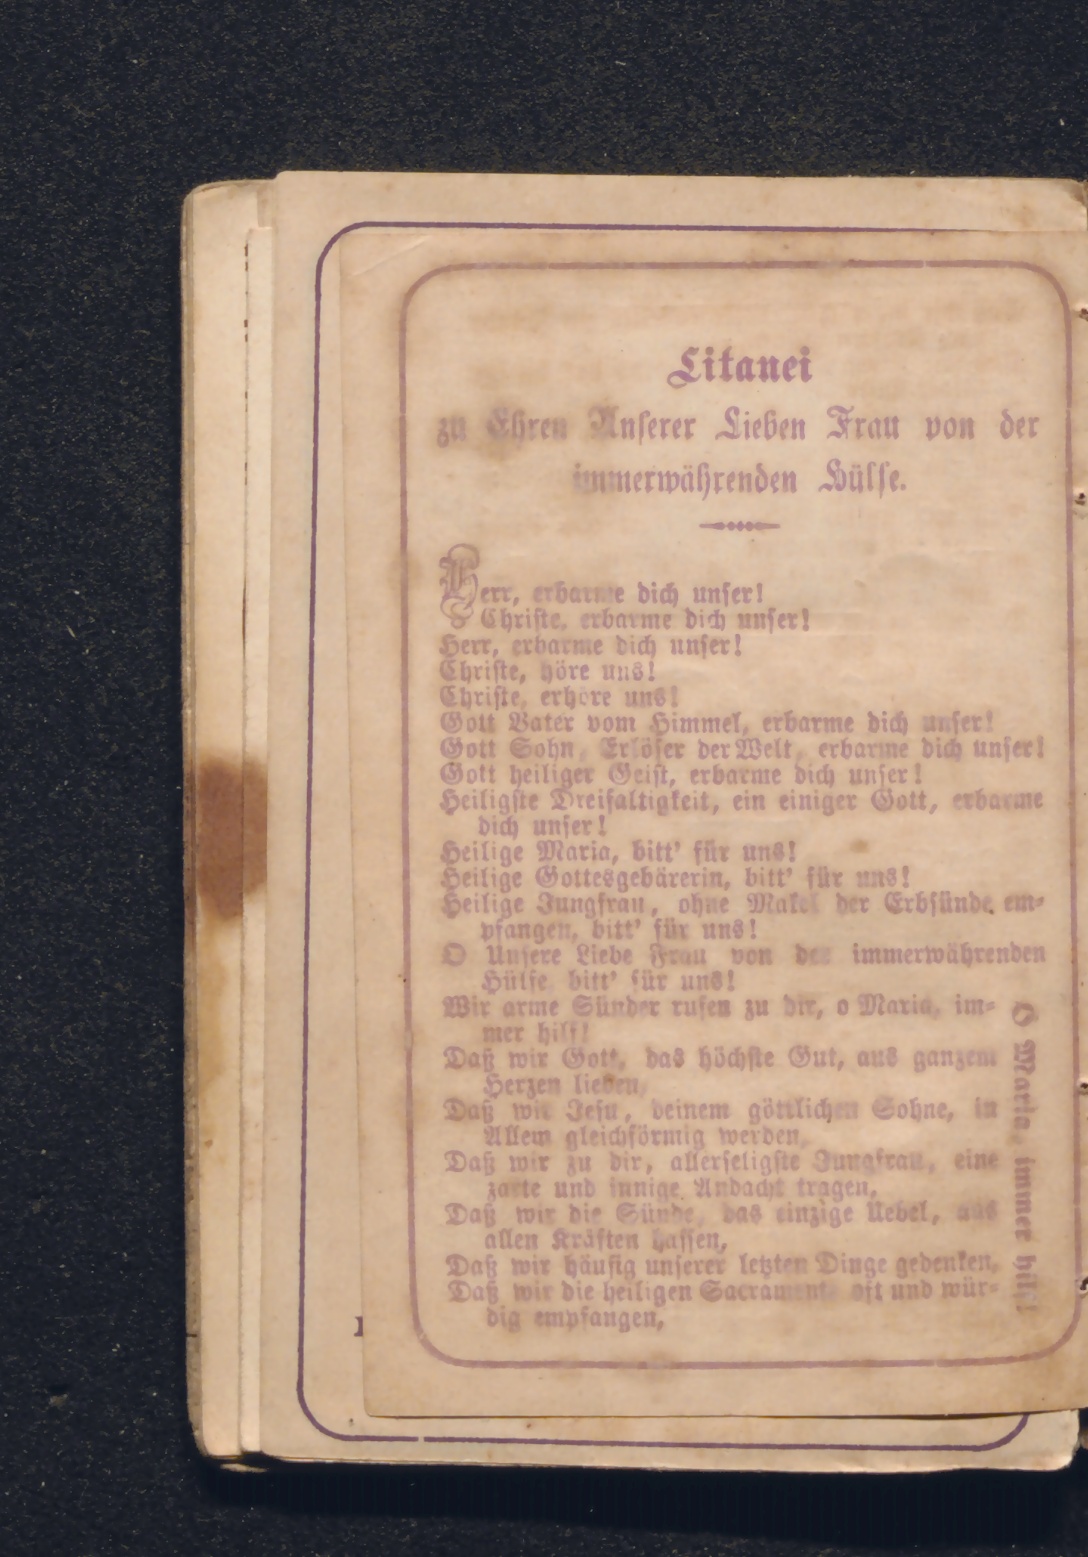 Litanei
zu Ehren Unserer Lieben Frau von der
immerwährenden Hülfe.
Herr, erbarme dich unser!
Christe, erbarme dich unser!
Herr, erbarme dich unser!
Christe, höre uns!
Christe, erhöre uns!
Gott Vater vom Himmel, erbarme dich unser!
Gott Sohn, Erlöser der Welt, erbarme dich unser!
Gott heiliger Geist, erbarme dich unser!
Heiligste Dreifaltigkeit, ein einiger Gott, erbarme
dich unser!
Heilige Maria, bitt' für uns!
Heilige Gottesgebärerin, bitt' für uns!
Heilige Jungfrau, ohne Makel der Erbsünde em-
pfangen, bitt' für uns!
O Unsere Liebe Frau von der immerwährenden
Hülfe bitt' für uns!
Wir arme Sünder rufen zu dir, o Maria, im-
mer hilf!
Daß wir Gott, das höchste Gut, aus ganzem
Herzen lieben,
Daß wir Jesu, deinem göttlichen Sohne, in
Allem gleichförmig werden,
Daß wir zu dir, allerseligste Jungfrau, eine
zarte und innige Andacht tragen,
Daß wir die Sünde, das einzige Uebel, aus
allen Kräften hassen,
Daß wir häufig unserer letzten Dinge gedenken,
Daß wir die heiligen Sacramente oft und wür-
dig empfangen,
O Maria, immer hilf!